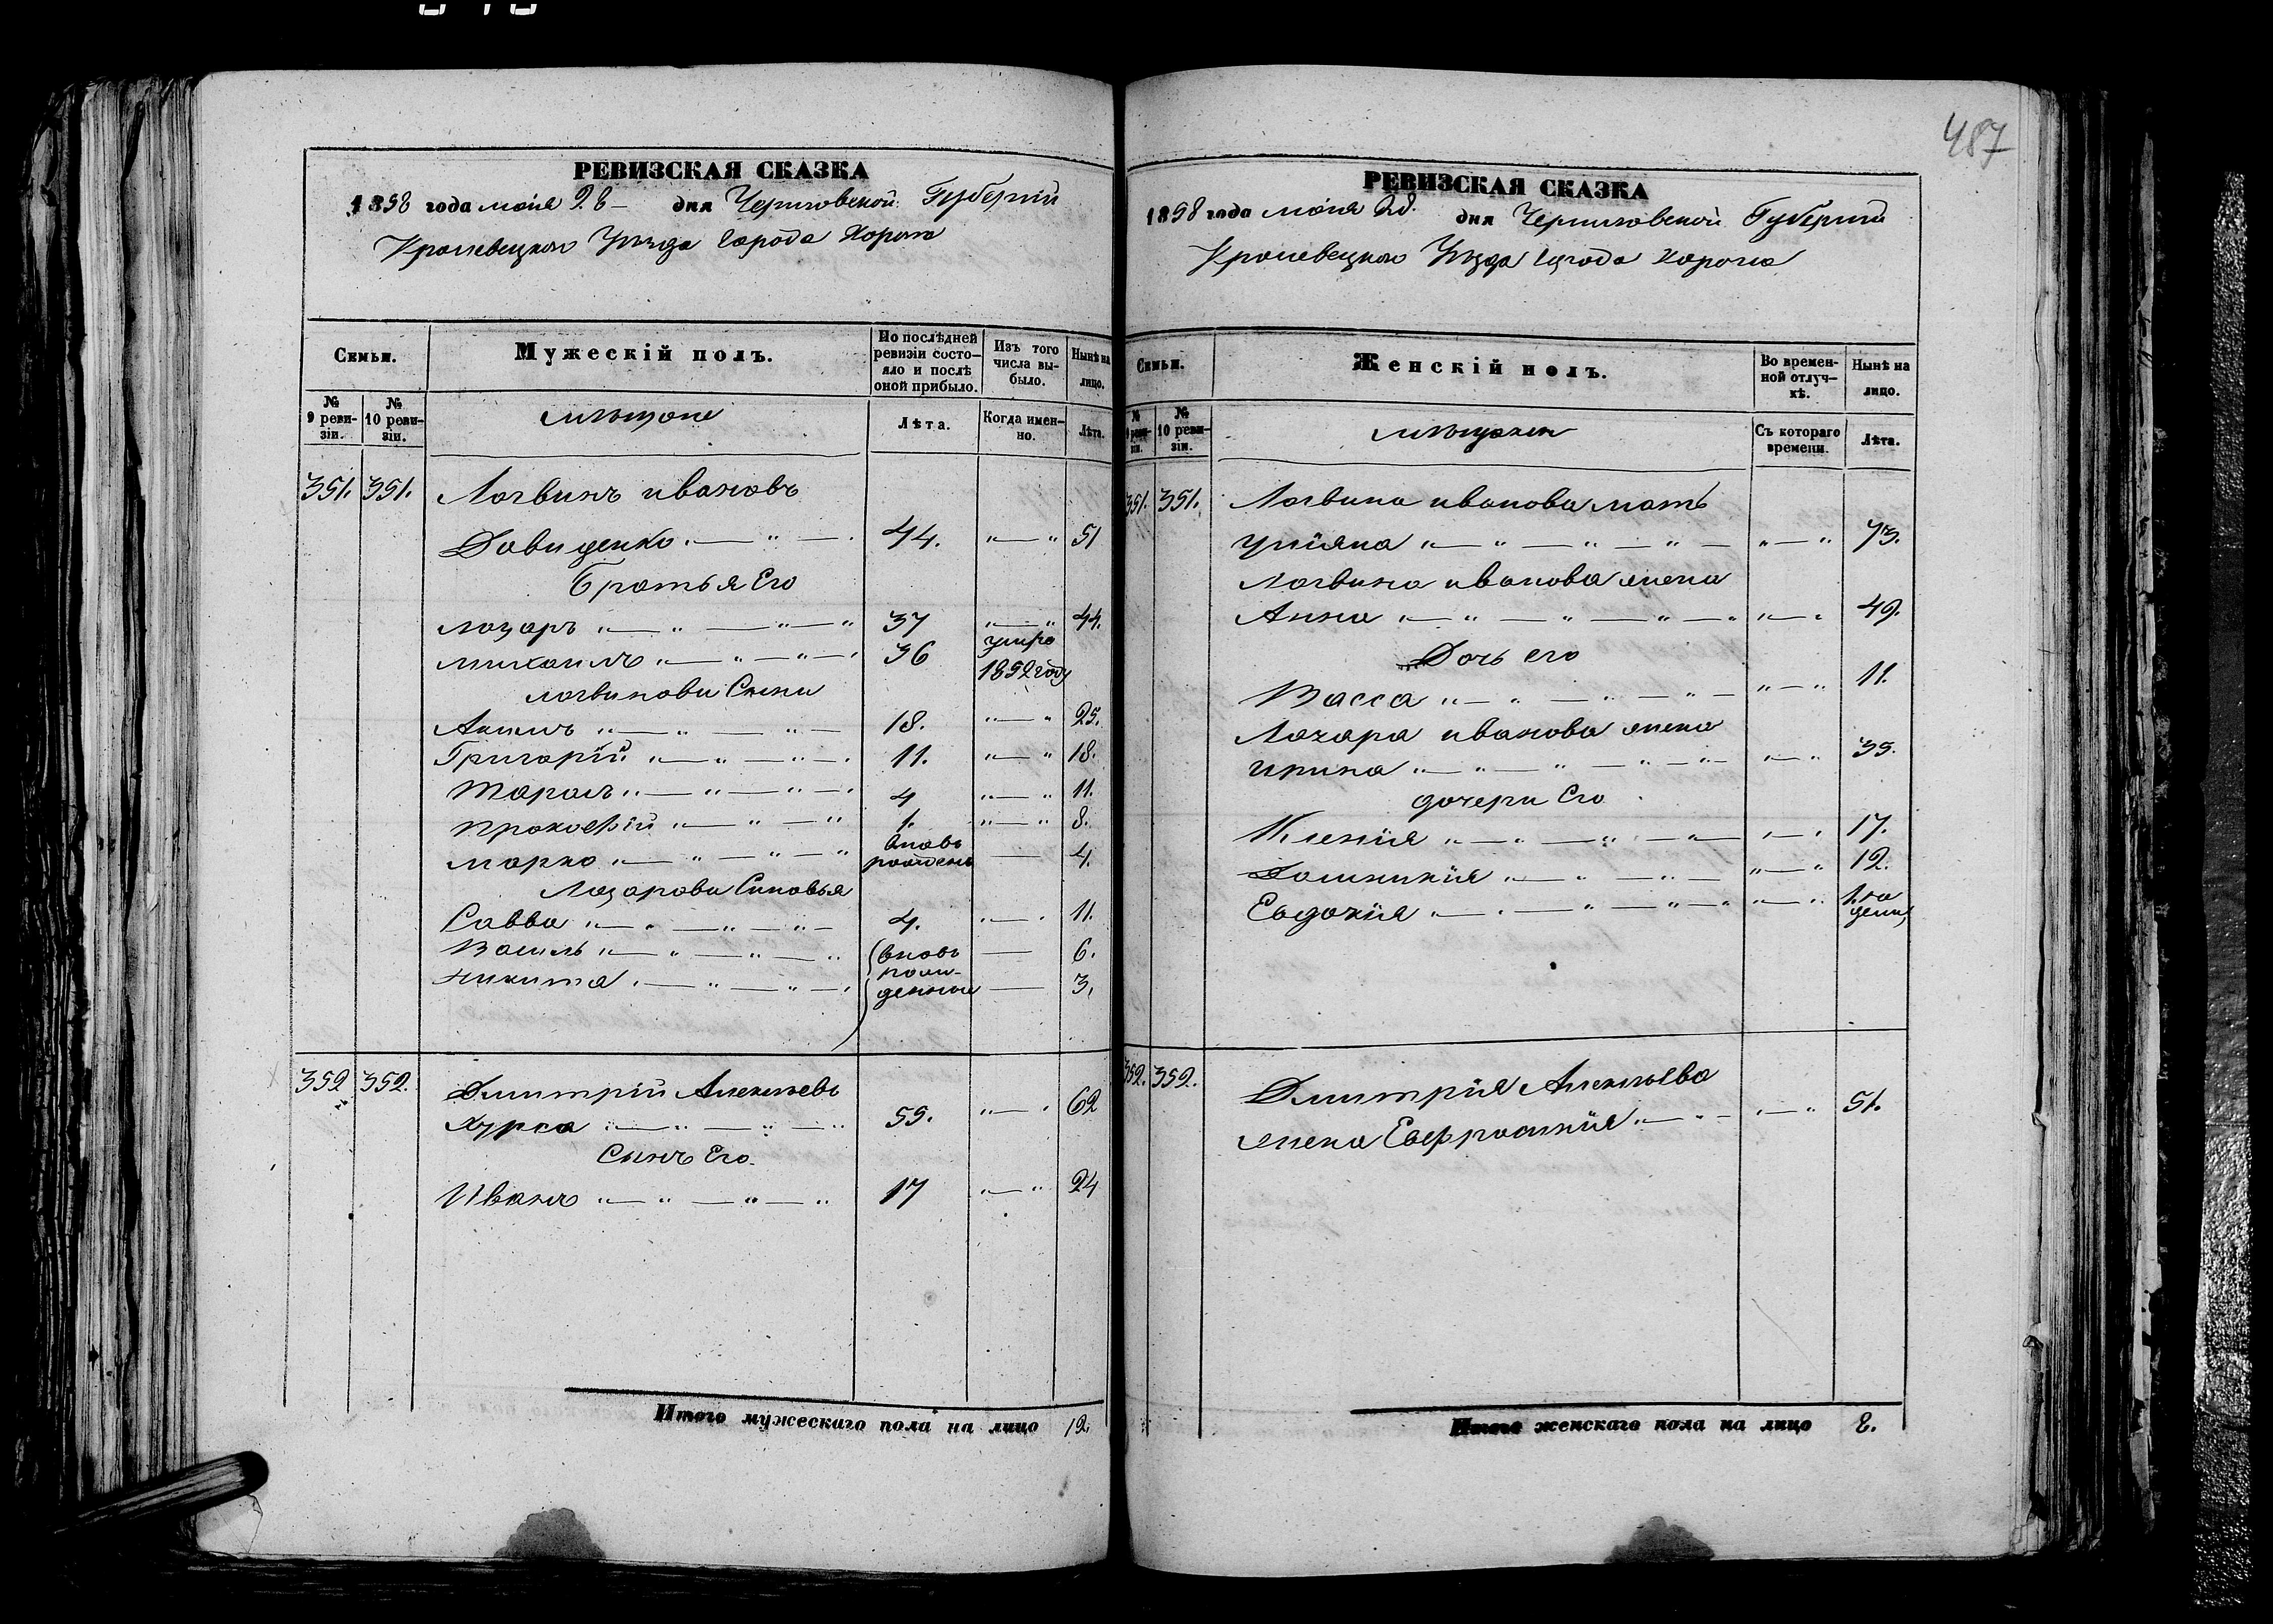 487
РЕВИЗСКАЯ СКАЗКА
1858 года маія 28 дня Черниговской Губерніи
Кролевецкого Уѣзда города Коропа
Семьи.
Мужескій полъ.
По послѣдней ревизіи состояло и послѣ оной прибыло.
Изъ того числа выбыло.
Нынѣ на лицо.
№ 9 ревизіи.
№ 10 ревизіи.
мѣщане
Лѣта.
Когда именно.
Лѣта.
351. 351. Логвинъ ивановъ
Давиденко 44. 51
Братья Его
Лазарь 37 44.
михаилъ 36 умре 1852 году
логвинови Сини
Акимъ 18. 25.
Григорій 11. 18.
Тарасъ 4 11.
прокофій 1. 8.
марко вновь рожденъ 4.
Лазарови Синовья
Савва 4. 11.
Василь (вновь 6.
рожденные
никита 3.
352 352. Дмитрій Алексѣевъ
Курса 55. 62
Сынъ Его
Иванъ 17 24
Итого мужескаго пола на лицо 12.
РЕВИЗСКАЯ СКАЗКА
1858 года маія 28. дня Черниговской Губерніи
Кролевецкого Уѣзда города Коропа
Семьи.
Женскій полъ.
Во временной отлучкѣ.
Нынѣ на лицо.
№ 9 ревизіи.
№ 10 ревизіи.
мѣщанки
Съ котораго времени.
Лѣта.
351. 351. Логвина иванова мать
уліяна 73.
Логвина иванова жена
Анна 49.
Дочь его
Васса 11.
Лазара иванова жена
ирина 39.
дочери Его
Ксенія 17.
Домникія 12.
Евдокія 1.
352. 352. Дмитрія Алексѣева
жена Евфросинія 51.
Итого женскаго пола на лицо 8.